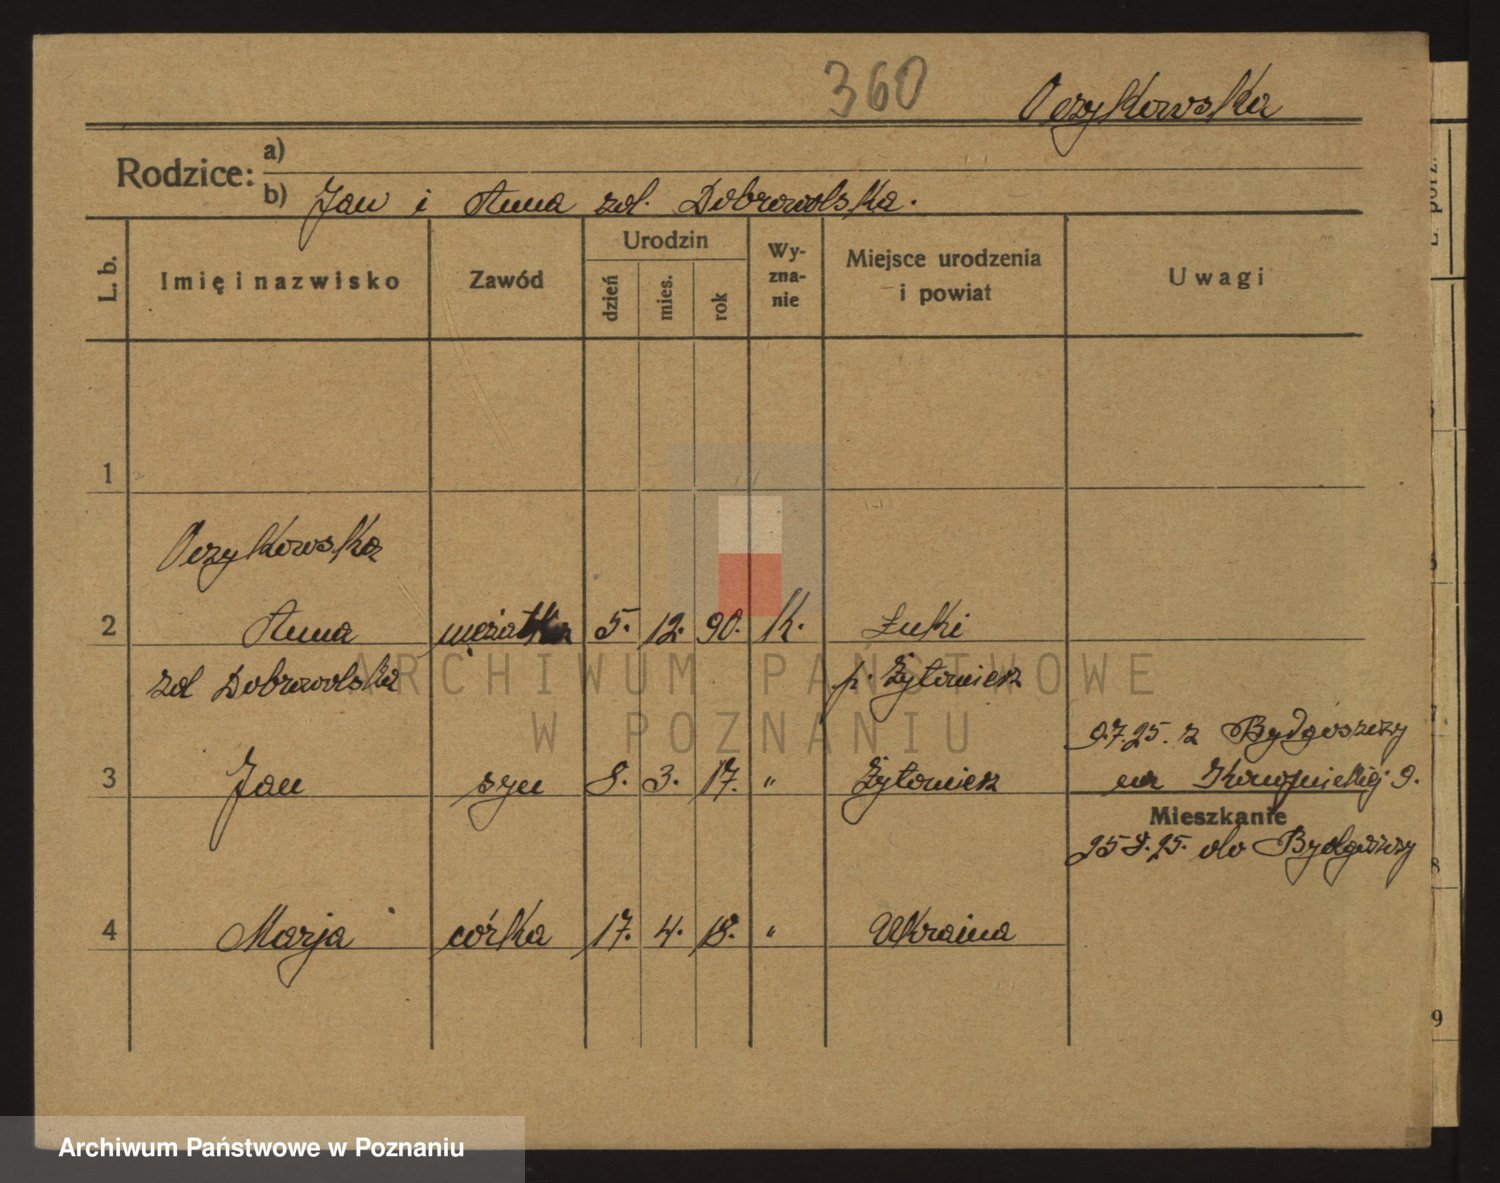 360
Oczykowska
Rodzice:
a)
b) Jan i Anna zd. Dobrowolska.
L. b.
Imię i nazwisko
Zawód
Urodzin
dzień
mies.
rok
Wy-
zna-
nie
Miejsce urodzenia
i powiat
Uwagi
1
Oczykowska
2 Anna mężatka 5. 12. 90. k. Łuki
zd Dobrowolska p. Żytomierz
9.7.25. z Bydgoszczy
3 Jan syn 8. 3. 17. " Żytomierz na 9.
Mieszkanie
25.8.25. do Bydgoszczy
4 Marja córka 17. 4. 18. " Ukraina
ARCHIWUM PAŃSTWOWE
W POZNANIU
8
9
Archiwum Państwowe w Poznaniu